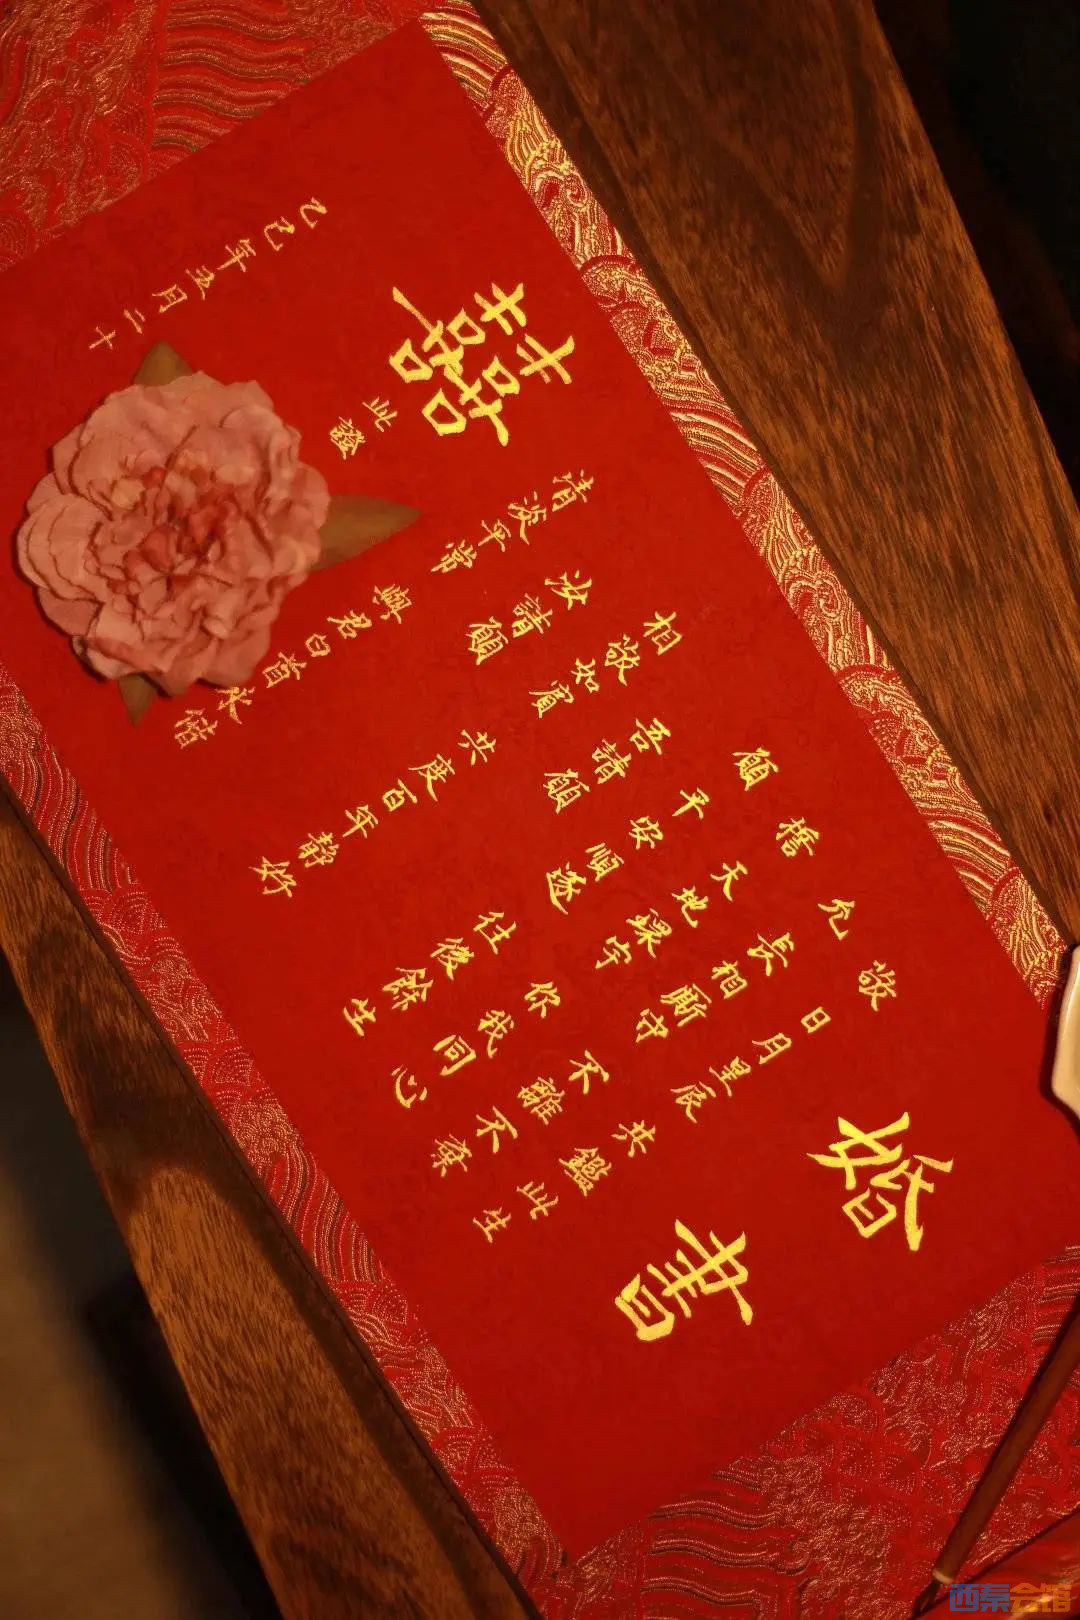 婚書
敬 日月星辰 共鑑此生
允 長相厮守 不離不棄
天地 宇 你我同心
願 平安順遂 往後餘生
吾請願
相敬如賓 共度百年靜好
汝請願
清淡平常 與君白首永偕
囍 此證
乙巳年五月二十
西秦会馆